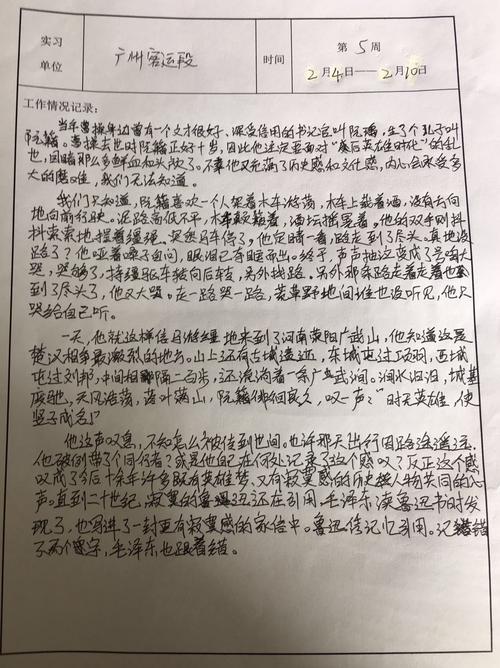 实习
单位
广州客运段
时间
第 5 周
2月4日——2月10日
工作情况记录:
当年曹操身边曾有一个文才很好、深受信用的书记官叫阮瑀,生了个儿子叫
阮籍。曹操去世时阮籍正好十岁,因此他注定要面对“后英雄时代”的乱
世,目睹那么多鲜血和头颅了。不幸他又充满了历史感和文化感,内心会承受多
大的磨难,我们无法知道。
我们只知道,阮籍喜欢一个人驾着木车游荡,木车上载着酒,没有方向
地向前行驶。泥路高低不平,木车颠簸着,酒坛摇晃着。他的双手则抖
抖索索地握着缰绳。突然马车停了,他定睛一看,路走到了尽头。真地没
路了?他哑着嗓子自问,眼泪已夺眶而出。终于,声声抽泣变成了号啕大
哭,哭够了,持缰驱车转向后转,另外找路。另外那条路走着走着也
到了尽头了,他又大哭。走一路哭一路,荒草野地间谁也没听见,他只
哭给自己听。
一天,他就这样信马游缰地来到了河南荥阳广武山,他知道这是
楚汉相争最激烈的地方。山上还有古城遗迹,东城屯过项羽,西城
屯过刘邦,中间相隔二百步,还流淌着一条广武涧。涧水汩汩,城基
废弛,天风浩荡,落叶满山,阮籍徘徊良久,叹一声:“时无英雄,使
竖子成名!”
他这声叹息,不知怎么被传到世间。也许那天出行因路途遥远
他破例带了个同行者?或是他自己在何处记录了这个感叹?反正这个感
叹成了今后千余年许多既有英雄梦、又有寂寞感的历史人物共同的心
声。直到二十世纪,寂寞的鲁迅还在引用,毛泽东读鲁迅书时发
现了,也写进了一封更有寂寞感的家信中。鲁迅凭记忆引用。记错
了两个字,毛泽东也跟着错。